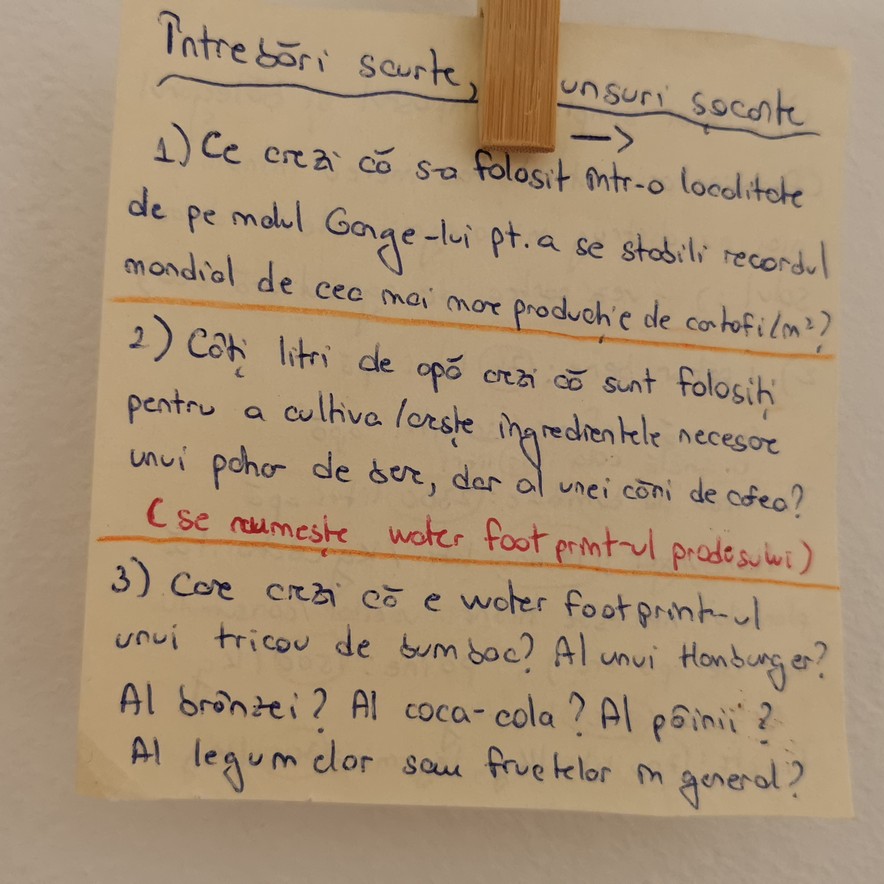 Întrebări scurte, unsuri șocante
→
1) Ce crezi că s-a folosit într-o localitate
de pe malul Gange-lui pt. a se stabili recordul
mondial de cea mai mare producție de cartofi/m²?
2) Câți litri de apă crezi că sunt folosiți
pentru a cultiva/crește ingredientele necesare
unui pahar de bere, dar al unei căni de cafea?
(se numește water footprint-ul produsului)
3) Care crezi că e water footprint-ul
unui tricou de bumbac? Al unui Hamburger?
Al brânzei? Al coca-cola? Al pâinii?
Al legumelor sau fructelor în general?